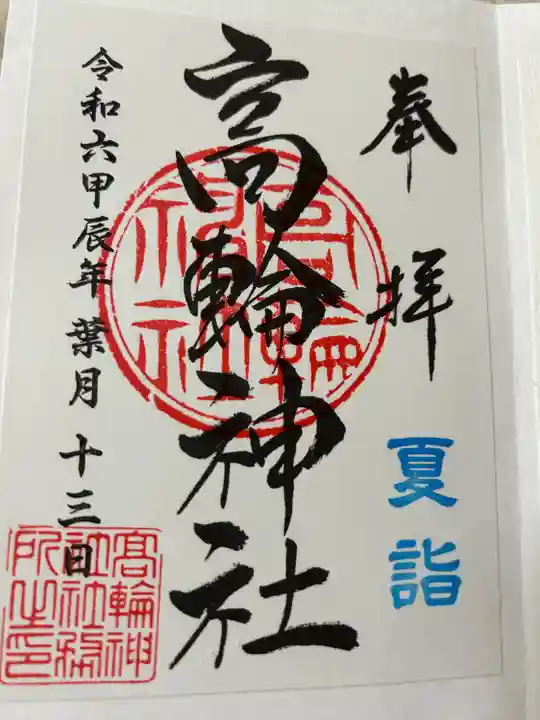 奉拝
夏詣
高輪神社
高輪神社
令和六甲辰年葉月十三日
高輪神
社社務
所之印